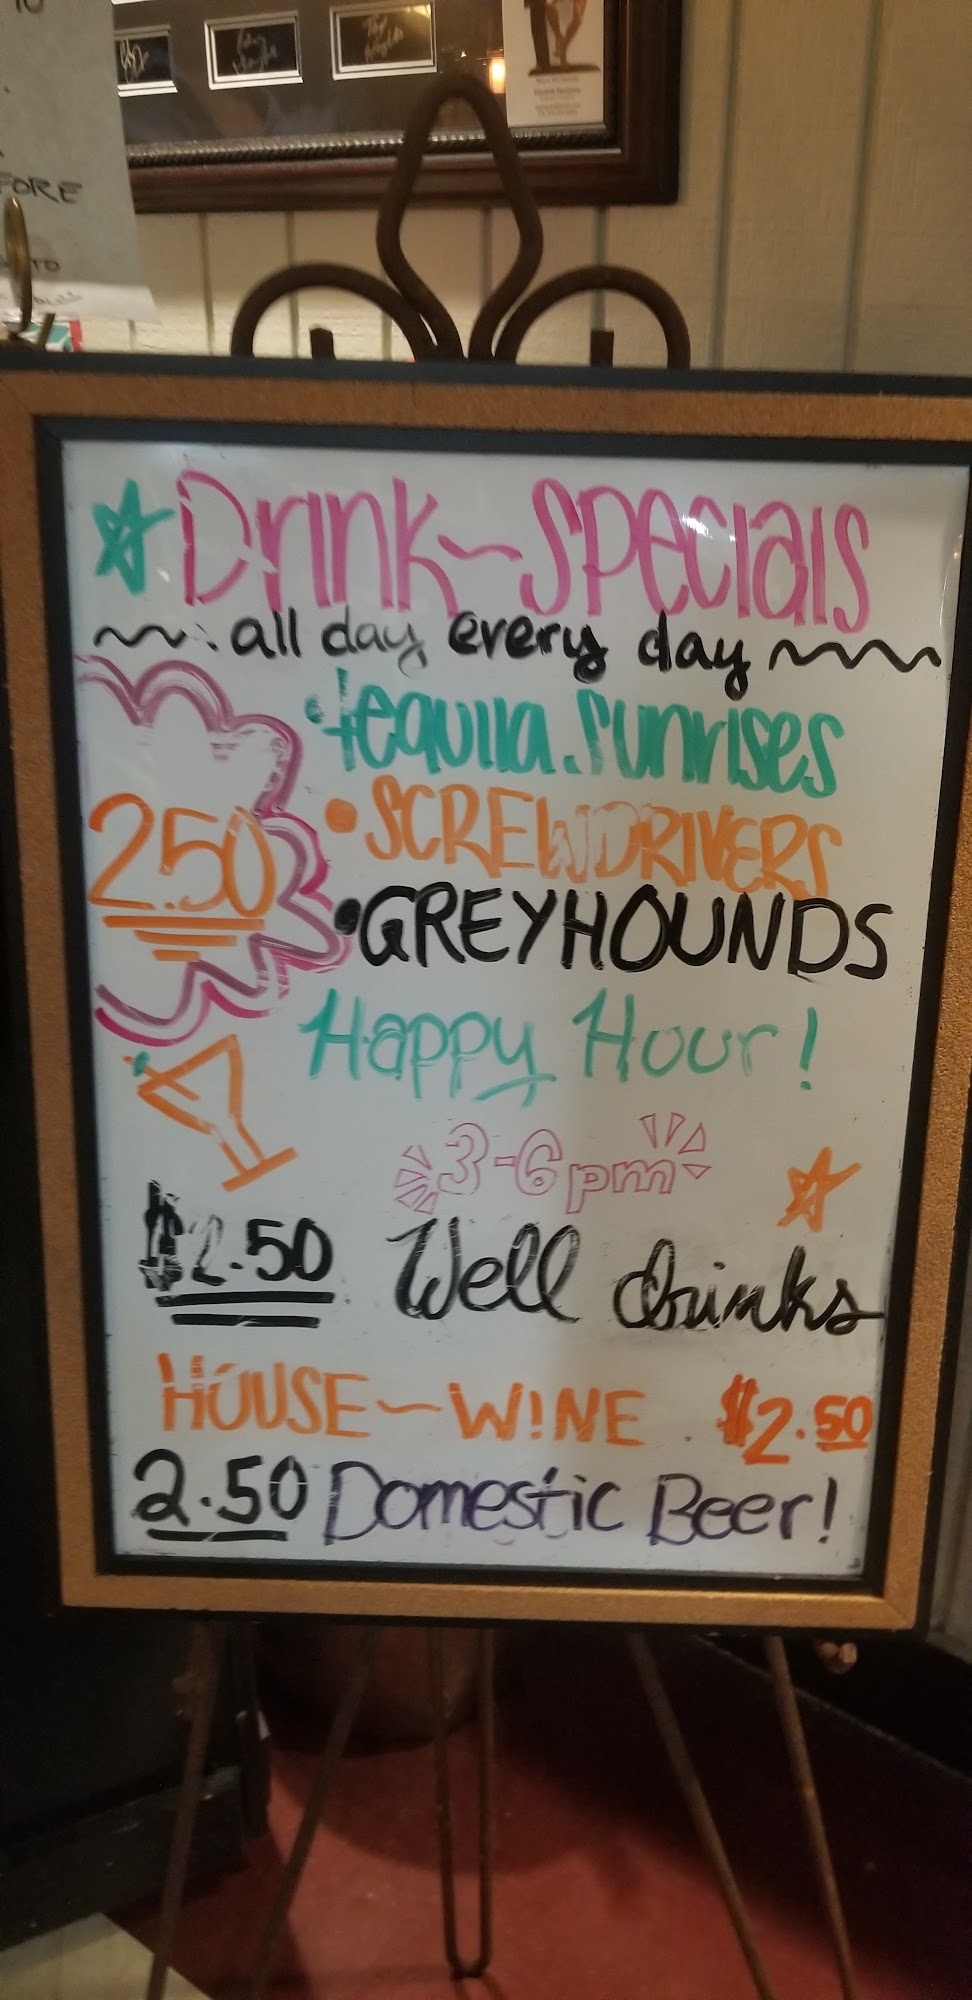 FORE
TO
Drink~Specials
all day every day
tequila sunrises
2.50
• SCREWDRIVERS
• GREYHOUNDS
Happy Hour!
3-6pm
$2.50 Well drinks
HOUSE~WINE $2.50
2.50 Domestic Beer!